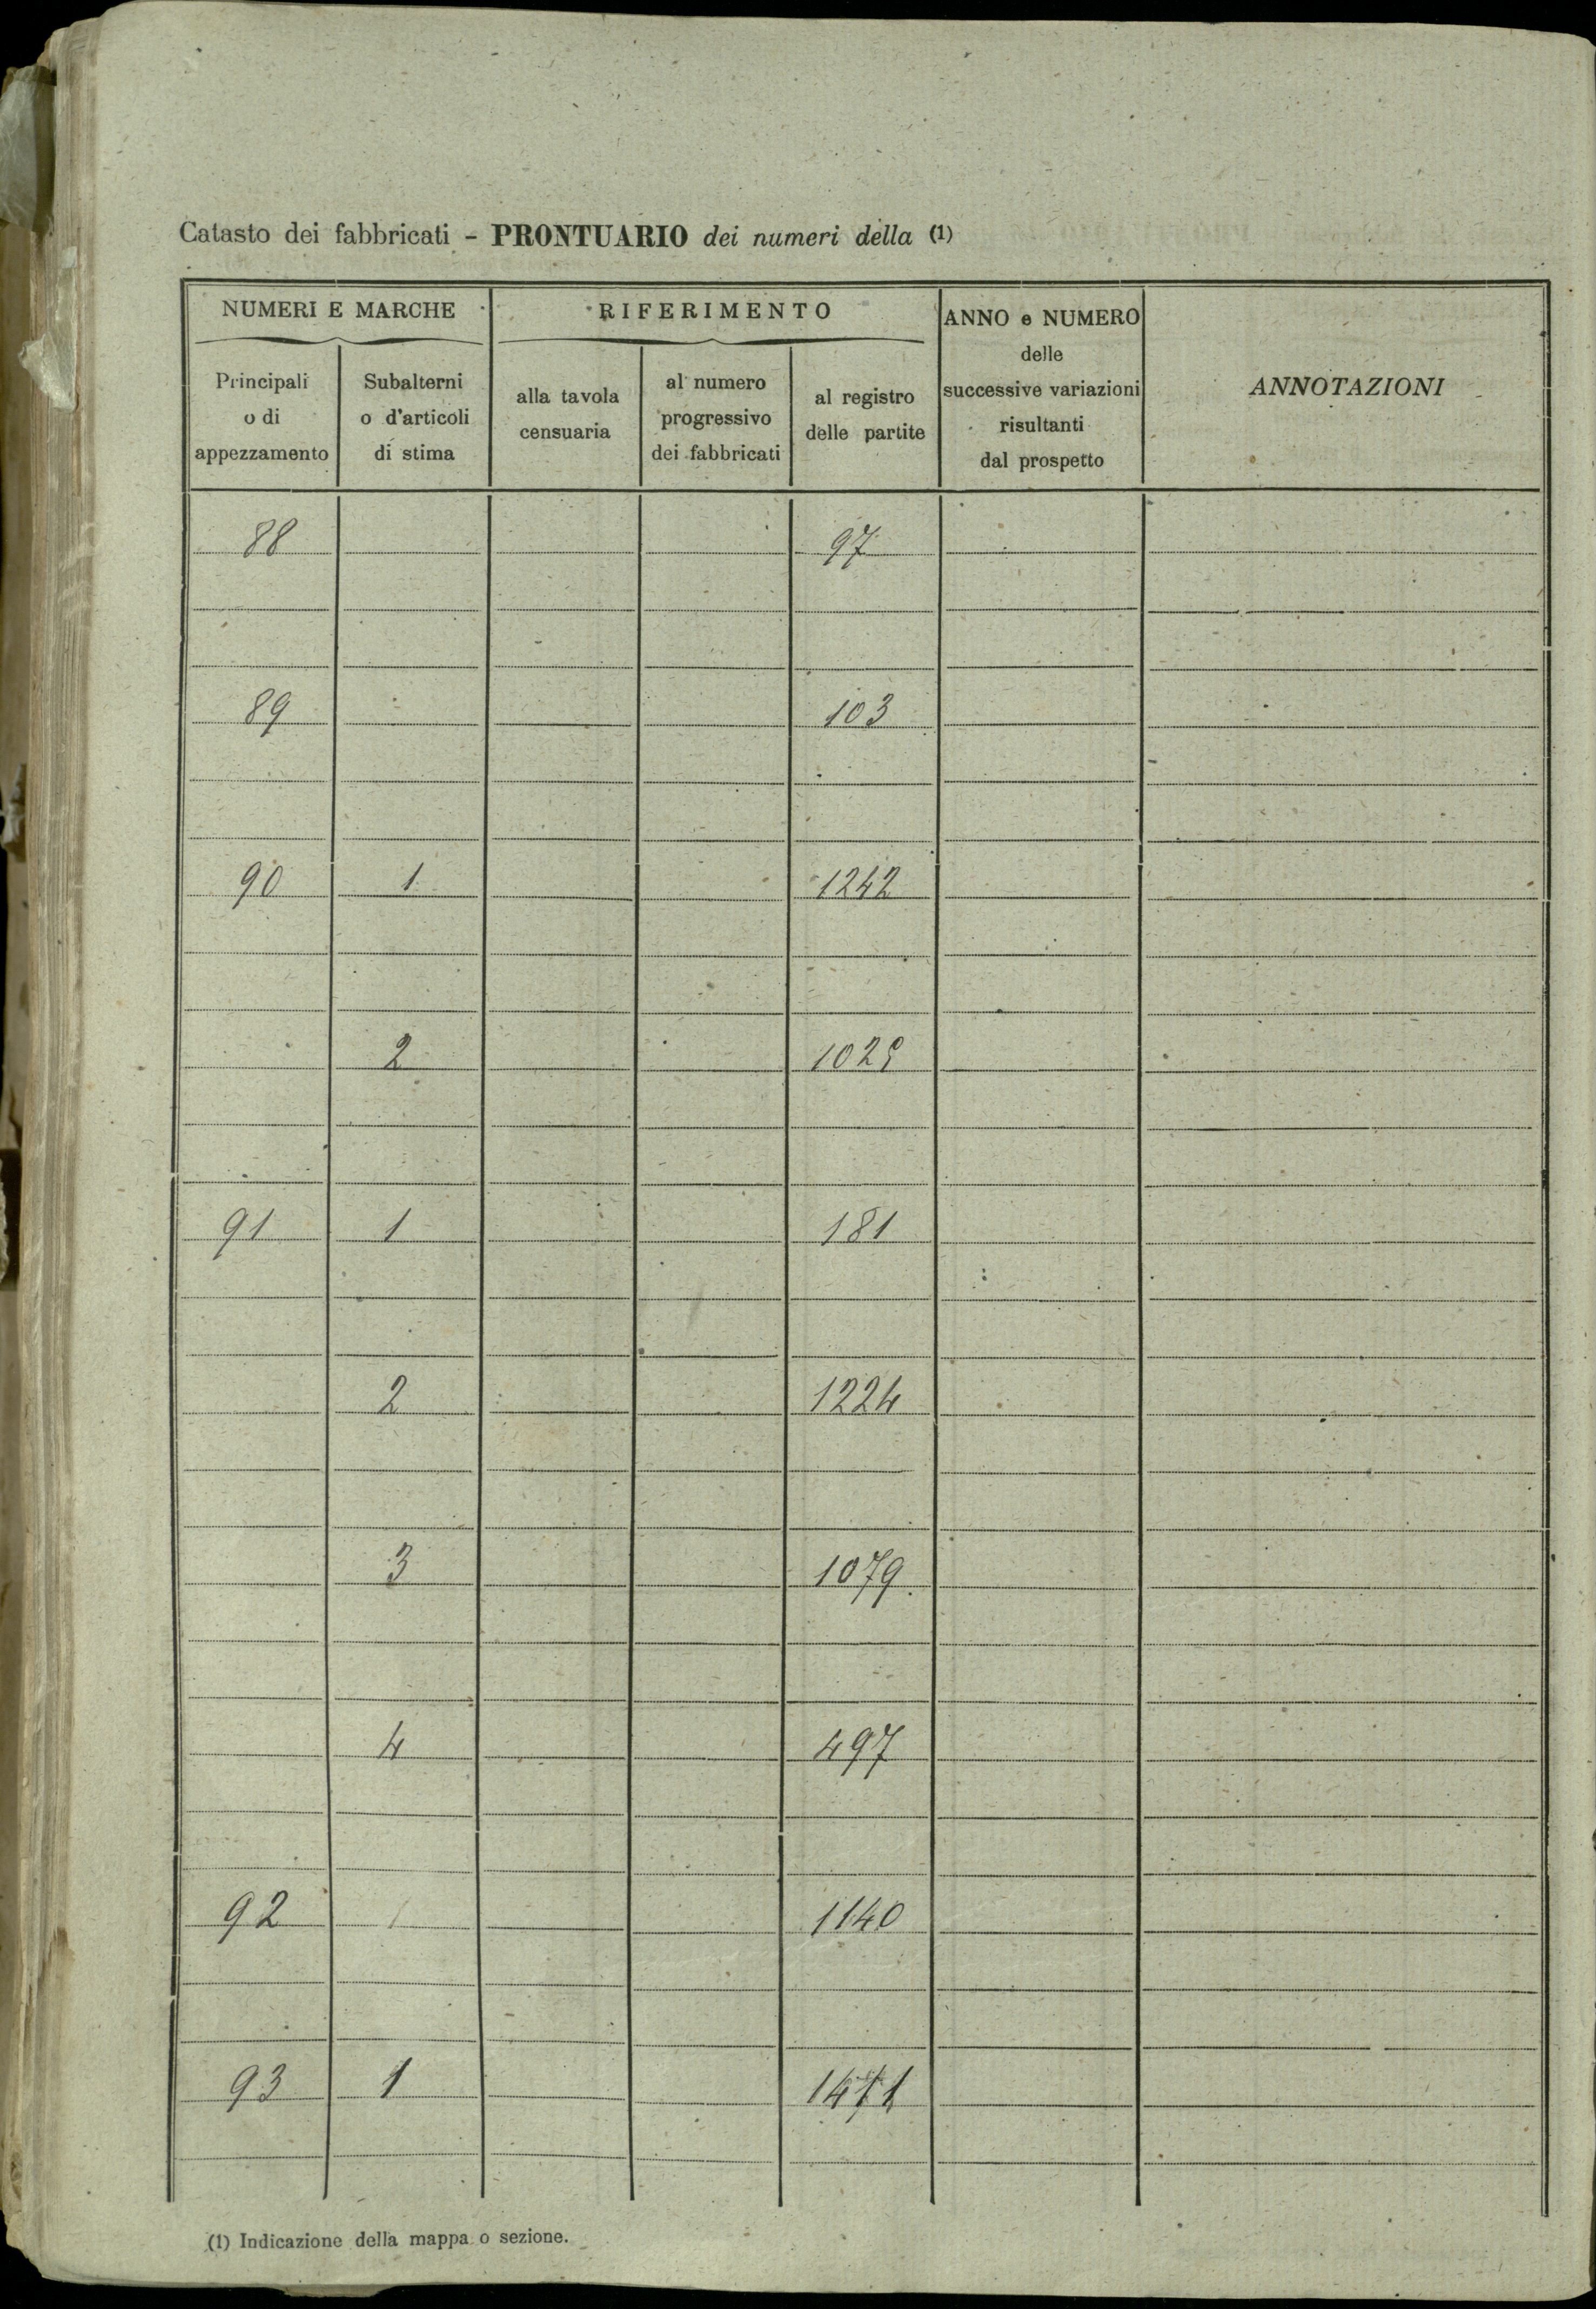 Catasto dei fabbricati - PRONTUARIO dei numeri della (1)
NUMERI E MARCHE RIFERIMENTO ANNO e NUMERO delle successive variazioni risultanti dal prospetto ANNOTAZIONI
Principali o di appezzamento Subalterni o d'articoli di stima alla tavola censuaria al numero progressivo dei fabbricati al registro delle partite
88 97
89 103
90 1 1242
2 1029
91 1 181
2 1224
3 1079
4 497
92 1 1140
93 1
(1) Indicazione della mappa o sezione.